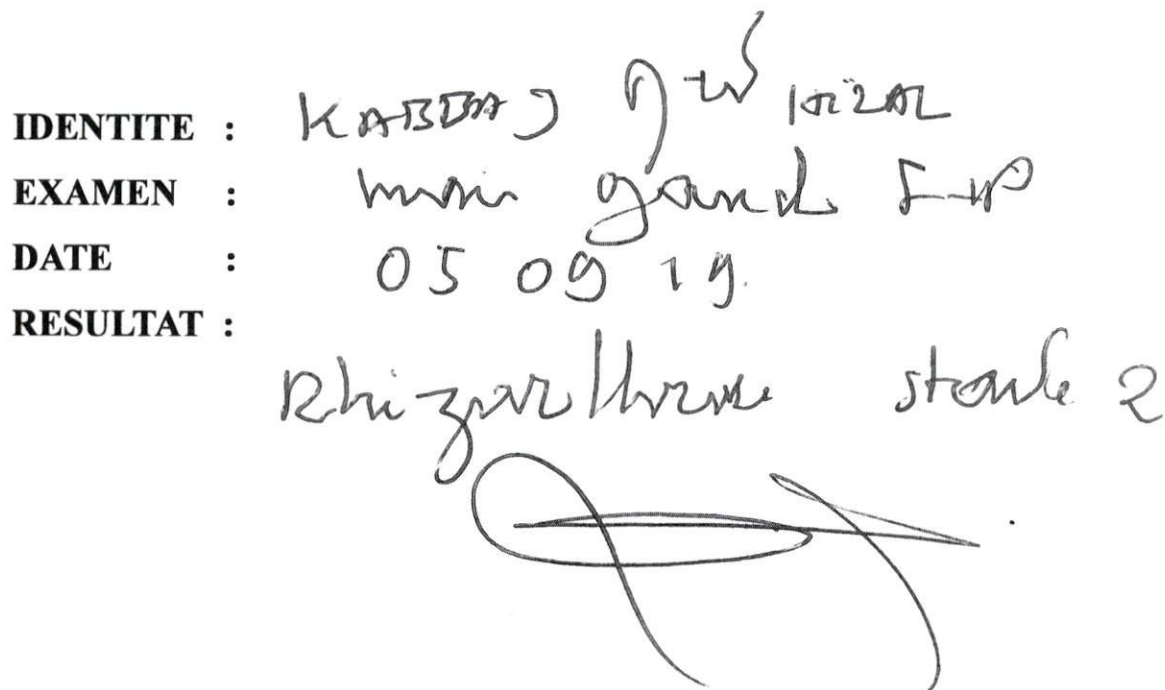 IDENTITE : KABBAJ
EXAMEN : main gauche F+P
DATE : 05 09 19.
RESULTAT :
Rhizarthrose stade 2